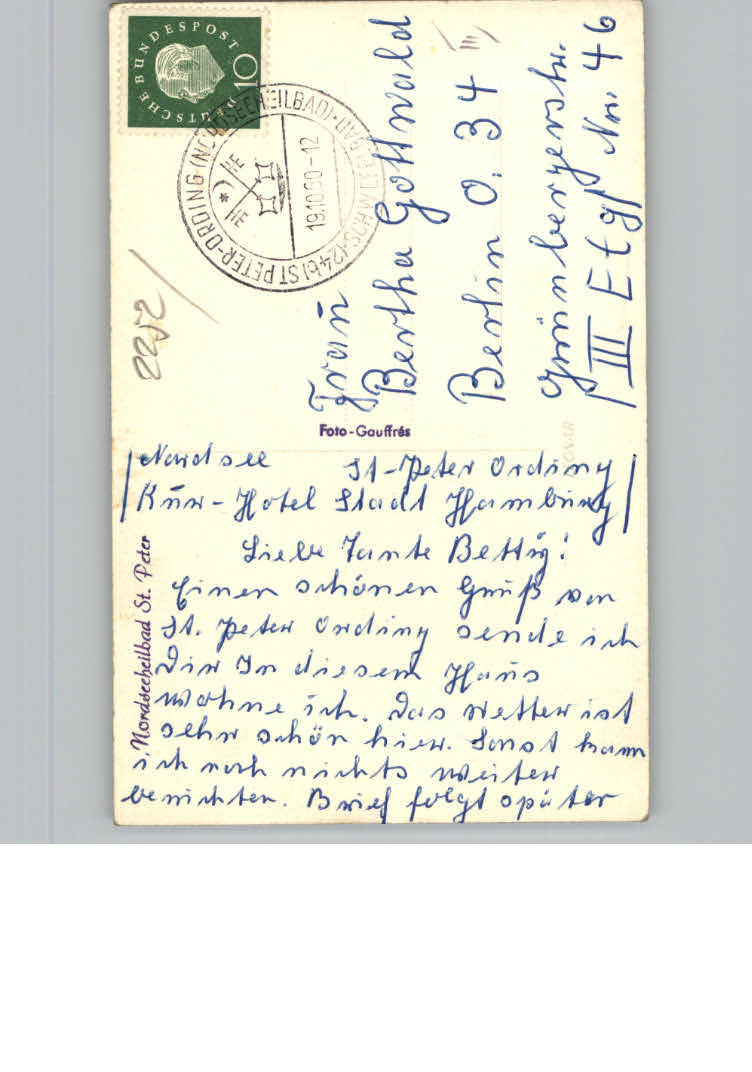 DEUTSCHE BUNDESPOST
10
(24b) ST PETER-ORDING (NORDSEEHEILBAD)
19.10.60-12
2252
Frau
Bertha Gottwald
Berlin O. 34
Grünbergerstr.
III Etg Nr. 46
Foto-Gauffrés
Nordseeheilbad St. Peter
Nordsee St-Peter Ording
Kur-Hotel Stadt Hamburg
Liebe Tante Bettÿ!
Einen schönen Gruß von
St. Peter Ording sende ich
Dir In diesem Haus
wohne ich. Das Wetter ist
sehr schön hier. Sonst kann
ich noch nichts weiter
berichten. Brief folgt später